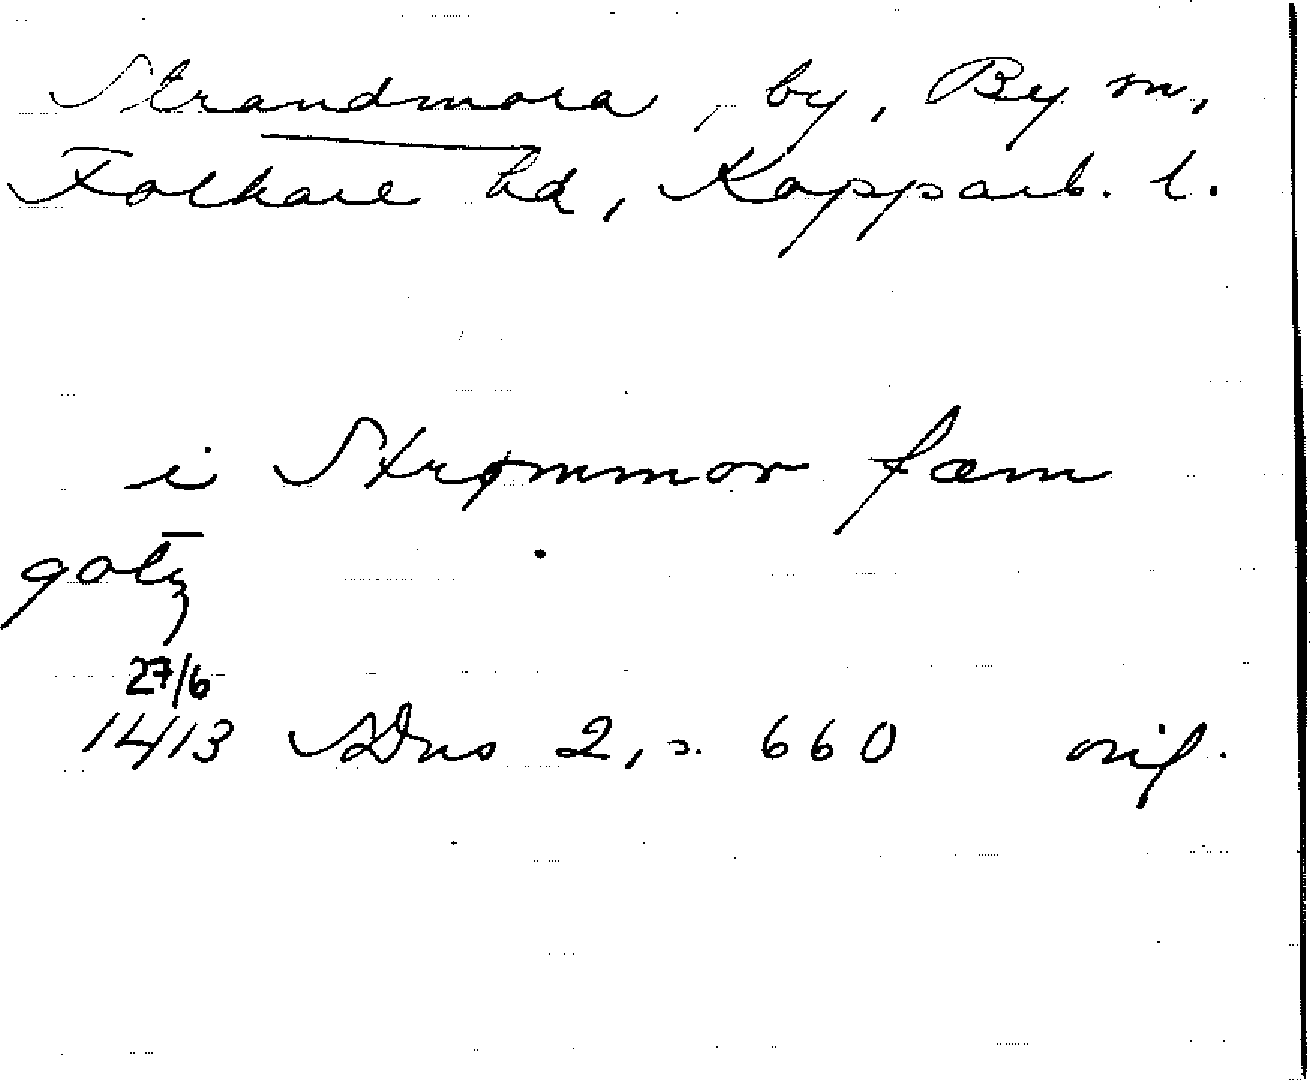 Strandmora, by, By sn,
Folkare hd, Kopparb. l.
i Strømmor fæm
gotz
27/6
1413 SDns 2, s. 660 orig.